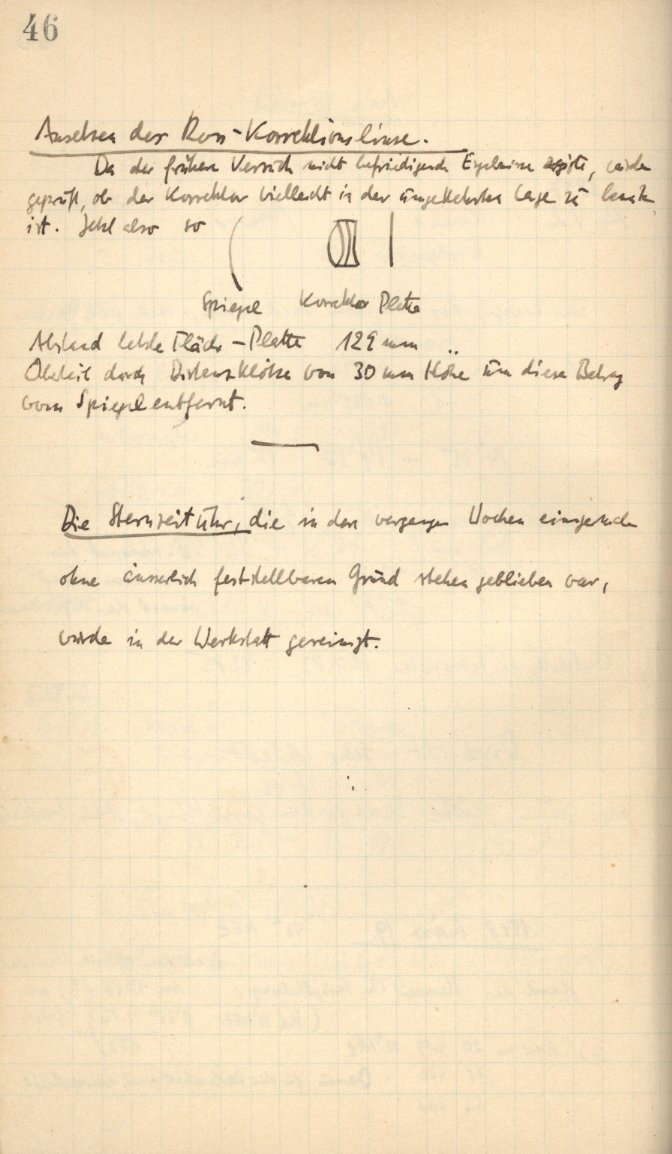 46
Ansetzen der Ross-Korrektionslinse.
Da der frühere Versuch nicht befriedigende Ergebnisse zeigte, wurde
geprüft, ob der Korrektor vielleicht in der umgekehrten Lage zu
ist. Jetzt also so
Spiegel Korrektor Platte
Abstand letzte Fläche – Platte 129 mm
Oberteil durch Distanzklötze von 30 mm Höhe um diesen Betrag
vom Spiegel entfernt.
Die Sternzeituhr, die in den vergangenen Wochen
ohne äusserlich feststellbaren Grund stehen geblieben war,
wurde in der Werkstatt gereinigt.